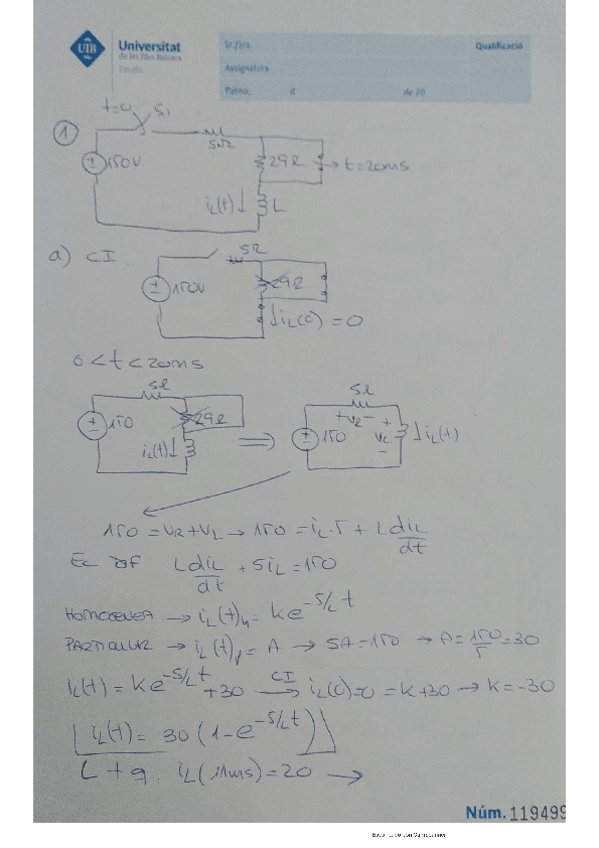 UIB Universitat
de les Illes Balears
Sr./Sra. Qualificació
Assignatura
Palma, d de 20
t=0 S1
1
5Ω
150V
29Ω
t=20ms
iL(t) L
a) CI
5Ω
150V
29Ω
iL(0) = 0
0 < t < 20ms
5Ω
150
29Ω
iL(t)
⇒
5Ω
150
+ vR -
+ vL -
iL(t)
150 = VR + VL → 150 = iL·5 + L diL/dt
Ec Dif L diL/dt + 5iL = 150
HOMOGENEA → iL(t)h = Ke^(-5/L t)
PARTICULAR → iL(t)p = A → 5A = 150 → A = 150/5 = 30
iL(t) = Ke^(-5/L t) + 30 CI → iL(0) = 0 = K + 30 → K = -30
iL(t) = 30 (1 - e^(-5/L t))
L t q. iL(11ms) = 20 →
Núm. 119499